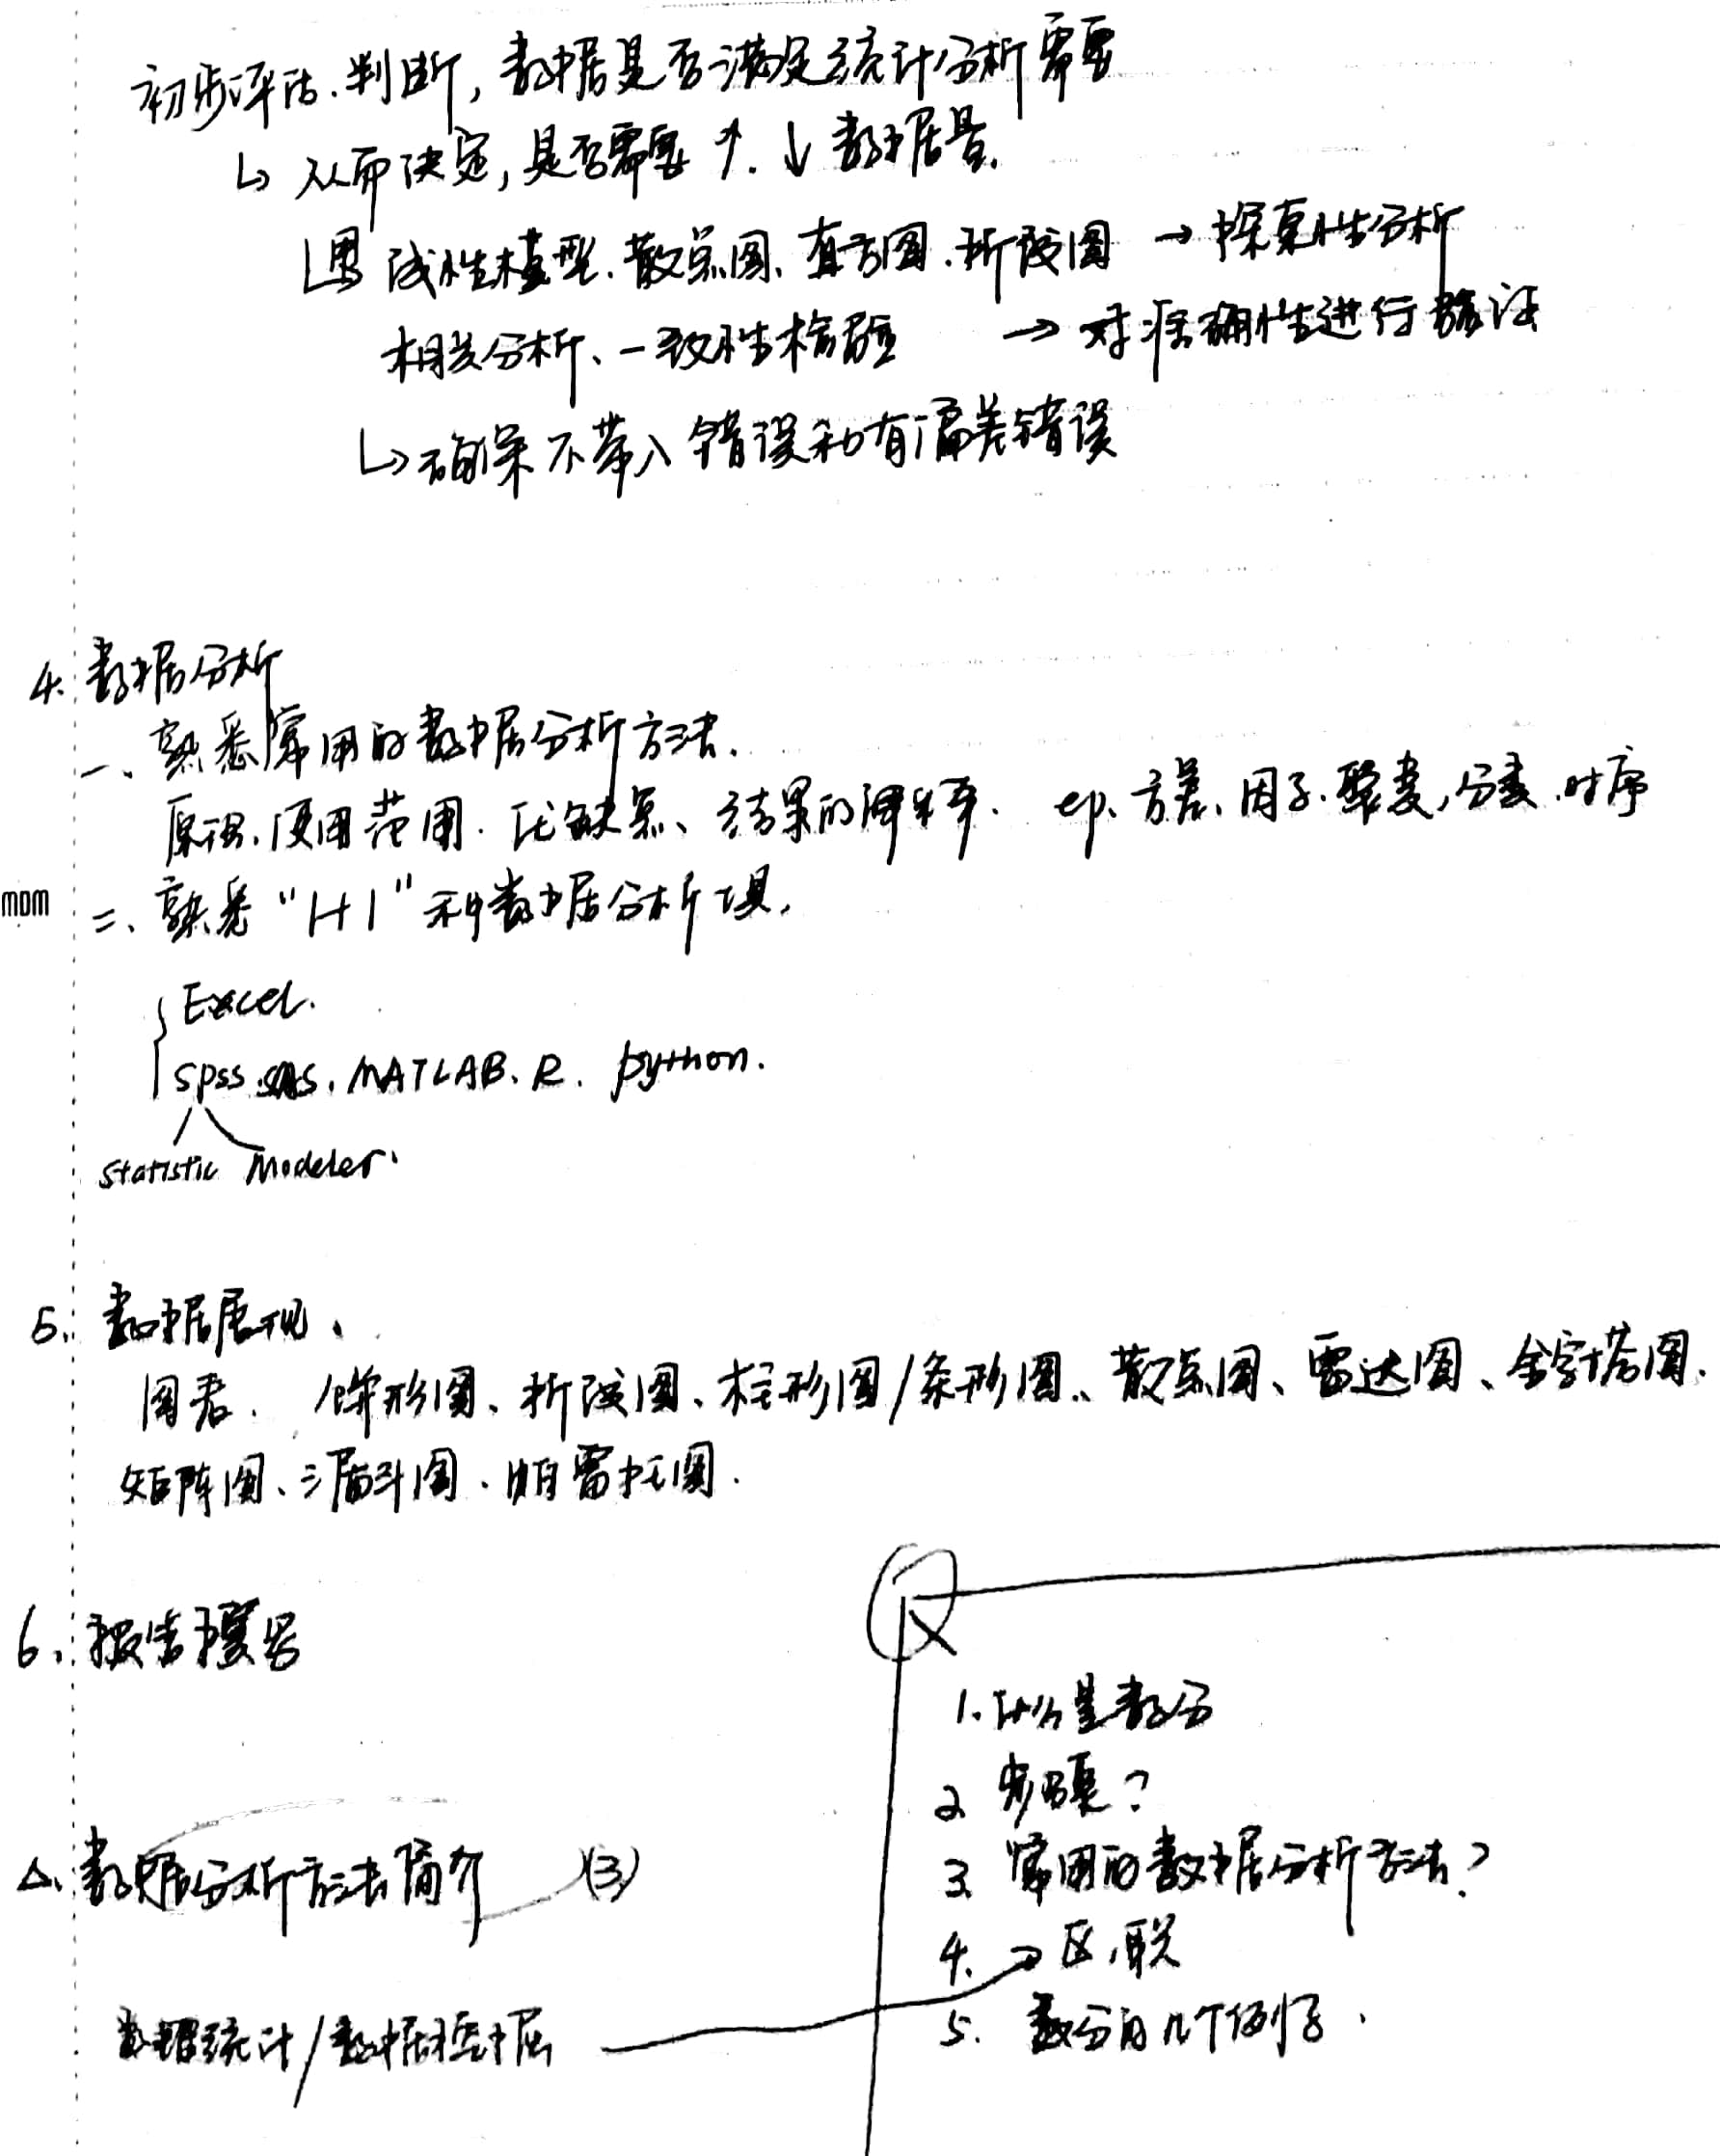 初步评估、判断，数据是否满足统计分析需要
↳ 从而决定，是否需要 ↑、↓ 数据量。
用 线性模型、散点图、直方图、折线图 → 探索性分析
相关分析、一致性检验 → 对准确性进行验证
↳ 确保不带入错误和有偏差错误
4. 数据分析
一、熟悉常用的数据分析方法。
原理、使用范围、优缺点、结果的解释. eg. 方差、因子、聚类，分类、时序
mDm
二、熟悉“1+1”种数据分析工具。
Excel.
SPSS. SAS. MATLAB. R. python.
Statistic Modeler.
5. 数据展现、
图表. 饼形图、折线图、柱形图/条形图、散点图、雷达图、金字塔图.
矩阵图、漏斗图、帕雷托图.
6. 报告撰写
△. 数据分析方法简介 (3)
数据统计/数据挖掘
1. 什么是数分
2. 步骤？
3. 常用的数据分析方法？
4. → 区，联
5. 数分的几个例子.